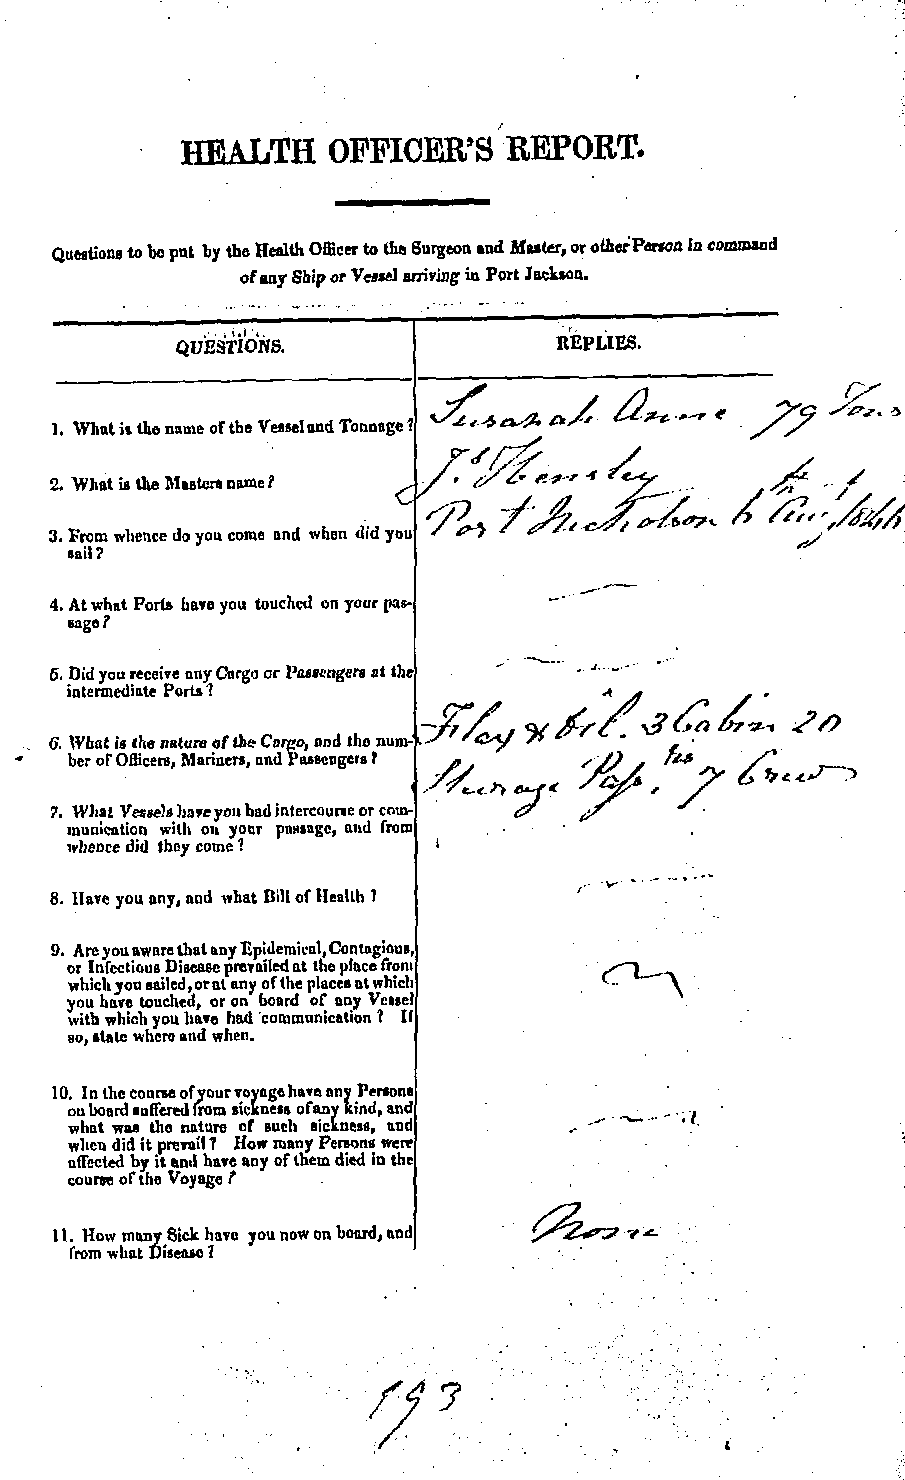 HEALTH OFFICER'S REPORT.
Questions to be put by the Health Officer to the Surgeon and Master, or other Person in command
of any Ship or Vessel arriving in Port Jackson.
QUESTIONS.
REPLIES.
1. What is the name of the Vessel and Tonnage?
Susanah Anne 79 Tons
2. What is the Masters name?
Js. Hensley
3. From whence do you come and when did you
sail?
Port Nicholson 6th Augt 1846
4. At what Ports have you touched on your pas-
sage?
5. Did you receive any Cargo or Passengers at the
intermediate Ports?
6. What is the nature of the Cargo, and the num-
ber of Officers, Mariners, and Passengers?
Flax & Oil. 3 Cabin 20
Steerage Pass. 7 Crew
7. What Vessels have you had intercourse or com-
munication with on your passage, and from
whence did they come?
8. Have you any, and what Bill of Health?
9. Are you aware that any Epidemical, Contagious,
or Infectious Disease prevailed at the place from
which you sailed, or at any of the places at which
you have touched, or on board of any Vessel
with which you have had communication? If
so, state where and when.
10. In the course of your voyage have any Persons
on board suffered from sickness of any kind, and
what was the nature of such sickness, and
when did it prevail? How many Persons were
affected by it and have any of them died in the
course of the Voyage?
11. How many Sick have you now on board, and
from what Disease?
None
193